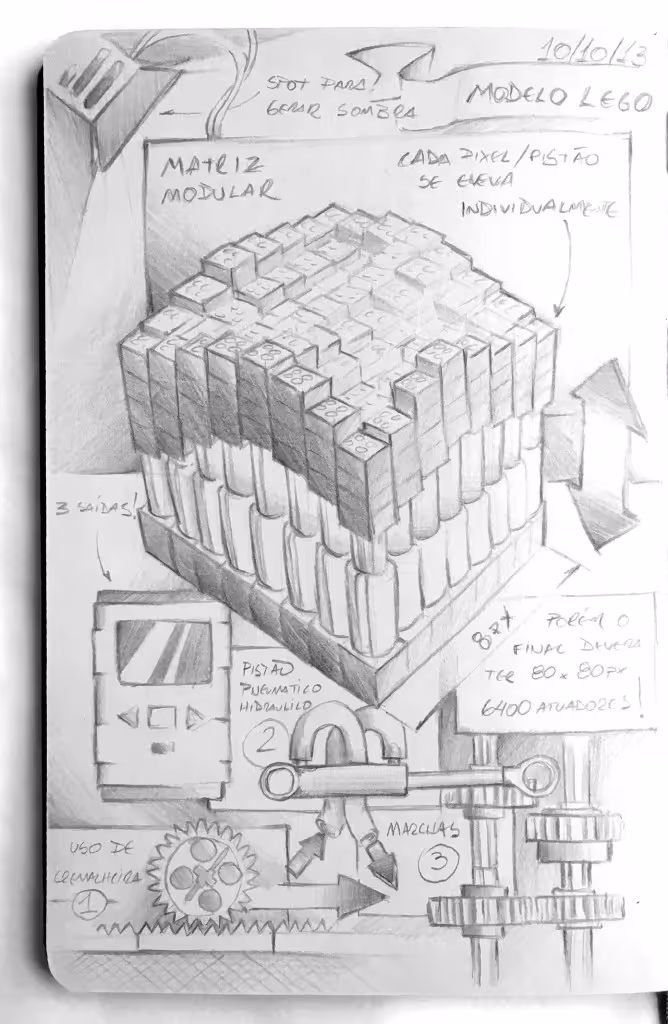 10/10/13
MODELO LEGO
SPOT PARA!
GERAR SOMBRA
MATRIZ
MODULAR
CADA PIXEL/PISTÃO
SE ELEVA
INDIVIDUALMENTE
3 SAÍDAS!
PORÉM O
FINAL DEVERÁ
TER 80x80PX
6400 ATUADORES!
PISTÃO
PNEUMATICO
HIDRAULICO
2
MARCHAS
3
USO DE
CREMALHEIRA
1